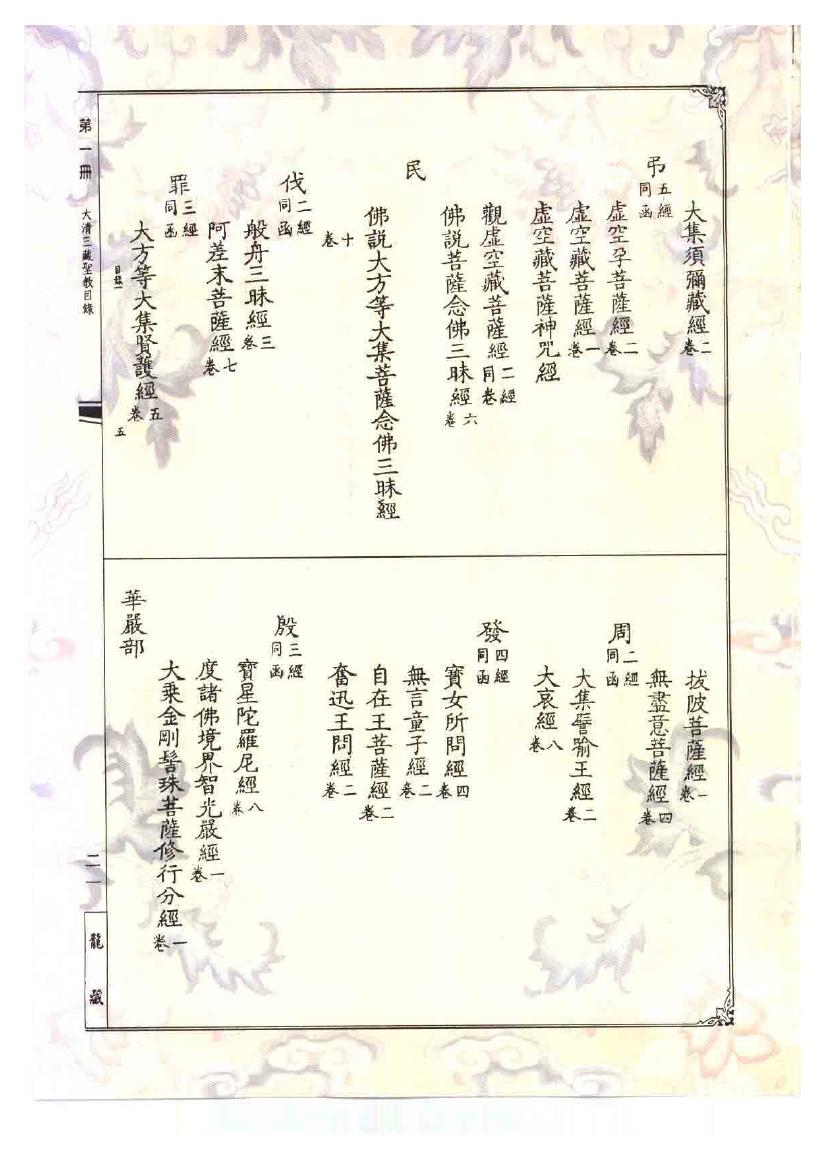 大集須彌藏經二卷
弔五經同函
虛空孕菩薩經二卷
虛空藏菩薩經一卷
虛空藏菩薩神咒經
觀虛空藏菩薩經二經同卷
佛說菩薩念佛三昧經六卷
民
佛說大方等大集菩薩念佛三昧經
十卷
伐二經同函
般舟三昧經三卷
阿差末菩薩經七卷
罪三經同函
大方等大集賢護經五卷
目錄一
五
拔陂菩薩經一卷
無盡意菩薩經四卷
周二經同函
大集譬喻王經二卷
大哀經八卷
發四經同函
寶女所問經四卷
無言童子經二卷
自在王菩薩經二卷
奮迅王問經二卷
殷三經同函
寶星陀羅尼經八卷
度諸佛境界智光嚴經一卷
大乘金剛髻珠菩薩修行分經一卷
華嚴部
第一冊
大清三藏聖教目錄
二一
龍藏